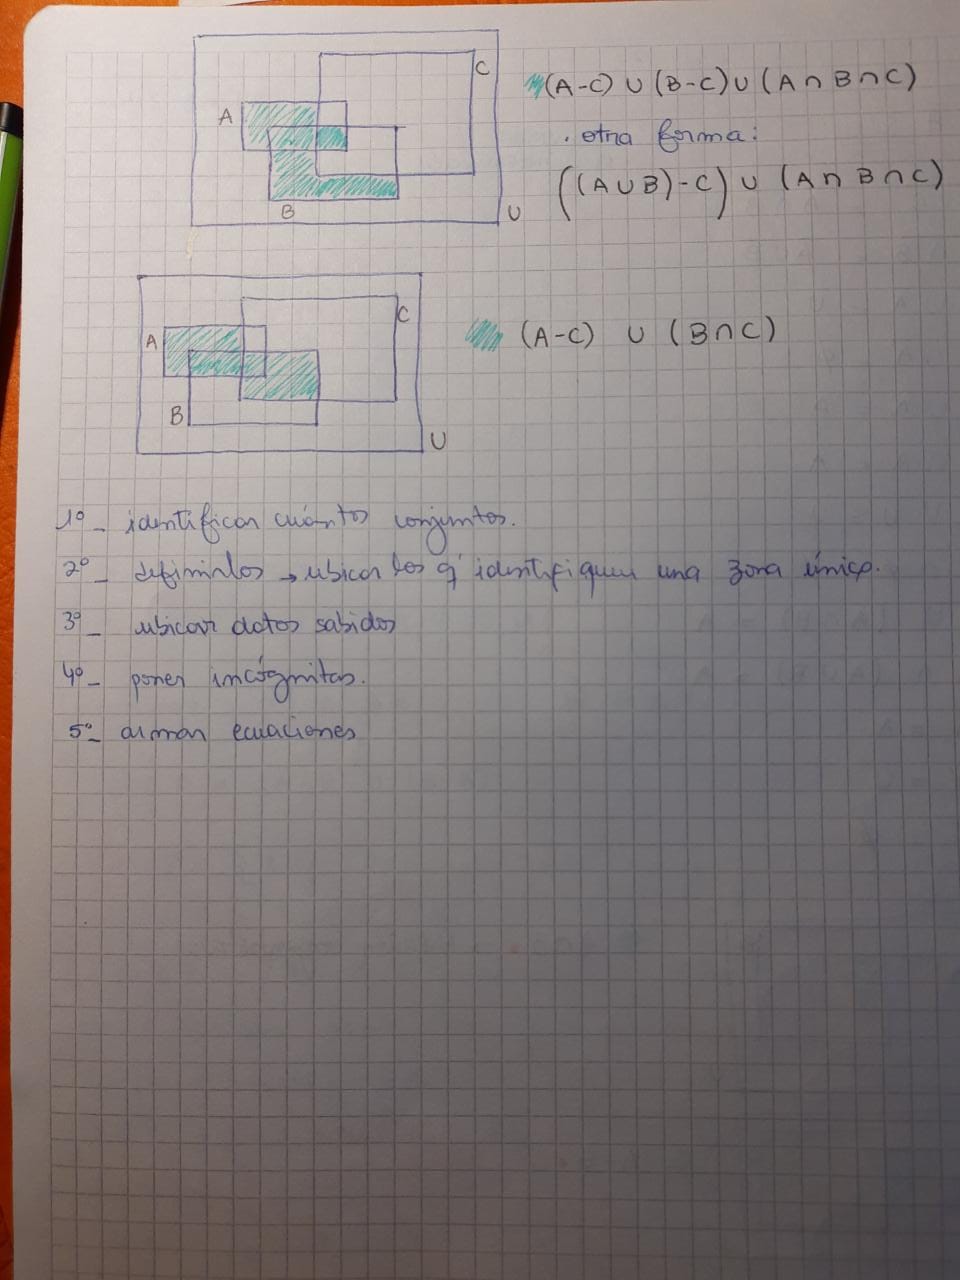 C
A
B
U
(A-C) ∪ (B-C) ∪ (A ∩ B ∩ C)
. otra forma:
((A ∪ B) - C) ∪ (A ∩ B ∩ C)
C
A
B
U
(A-C) ∪ (B ∩ C)
1º - identificar cuántos conjuntos.
2º - definirlos → ubicar los q' identifiquen una zona única.
3º - ubicar datos sabidos
4º - poner incógnitas.
5º - armar ecuaciones